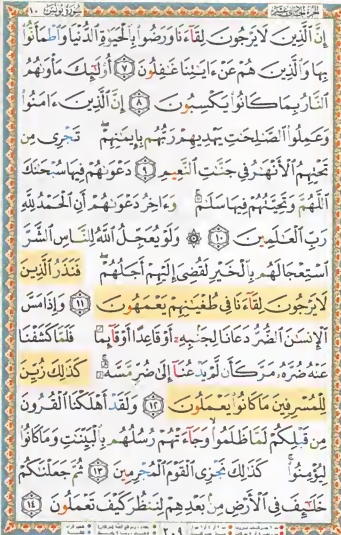 سورة يونس ١٠
إِنَّ ٱلَّذِينَ لَا يَرْجُونَ لِقَآءَنَا وَرَضُوا۟ بِٱلْحَيَوٰةِ ٱلدُّنْيَا وَٱطْمَأَنُّوا۟
بِهَا وَٱلَّذِينَ هُمْ عَنْ ءَايَٰتِنَا غَٰفِلُونَ ٧ أُو۟لَٰٓئِكَ مَأْوَىٰهُمُ
ٱلنَّارُ بِمَا كَانُوا۟ يَكْسِبُونَ ٨ إِنَّ ٱلَّذِينَ ءَامَنُوا۟
وَعَمِلُوا۟ ٱلصَّٰلِحَٰتِ يَهْدِيهِمْ رَبُّهُم بِإِيمَٰنِهِمْ ۖ تَجْرِى مِن
تَحْتِهِمُ ٱلْأَنْهَٰرُ فِى جَنَّٰتِ ٱلنَّعِيمِ ٩ دَعْوَىٰهُمْ فِيهَا سُبْحَٰنَكَ
ٱللَّهُمَّ وَتَحِيَّتُهُمْ فِيهَا سَلَٰمٌ ۚ وَءَاخِرُ دَعْوَىٰهُمْ أَنِ ٱلْحَمْدُ لِلَّهِ
رَبِّ ٱلْعَٰلَمِينَ ١٠ ۞ وَلَوْ يُعَجِّلُ ٱللَّهُ لِلنَّاسِ ٱلشَّرَّ
ٱسْتِعْجَالَهُم بِٱلْخَيْرِ لَقُضِىَ إِلَيْهِمْ أَجَلُهُمْ ۖ فَنَذَرُ ٱلَّذِينَ
لَا يَرْجُونَ لِقَآءَنَا فِى طُغْيَٰنِهِمْ يَعْمَهُونَ ١١ وَإِذَا مَسَّ
ٱلْإِنسَٰنَ ٱلضُّرُّ دَعَانَا لِجَنۢبِهِۦٓ أَوْ قَاعِدًا أَوْ قَآئِمًا فَلَمَّا كَشَفْنَا
عَنْهُ ضُرَّهُۥ مَرَّ كَأَن لَّمْ يَدْعُنَآ إِلَىٰ ضُرٍّ مَّسَّهُۥ ۚ كَذَٰلِكَ زُيِّنَ
لِلْمُسْرِفِينَ مَا كَانُوا۟ يَعْمَلُونَ ١٢ وَلَقَدْ أَهْلَكْنَا ٱلْقُرُونَ
مِن قَبْلِكُمْ لَمَّا ظَلَمُوا۟ ۙ وَجَآءَتْهُمْ رُسُلُهُم بِٱلْبَيِّنَٰتِ وَمَا كَانُوا۟
لِيُؤْمِنُوا۟ ۚ كَذَٰلِكَ نَجْزِى ٱلْقَوْمَ ٱلْمُجْرِمِينَ ١٣ ثُمَّ جَعَلْنَٰكُمْ
خَلَٰٓئِفَ فِى ٱلْأَرْضِ مِنۢ بَعْدِهِمْ لِنَنظُرَ كَيْفَ تَعْمَلُونَ ١٤
٢٠٩